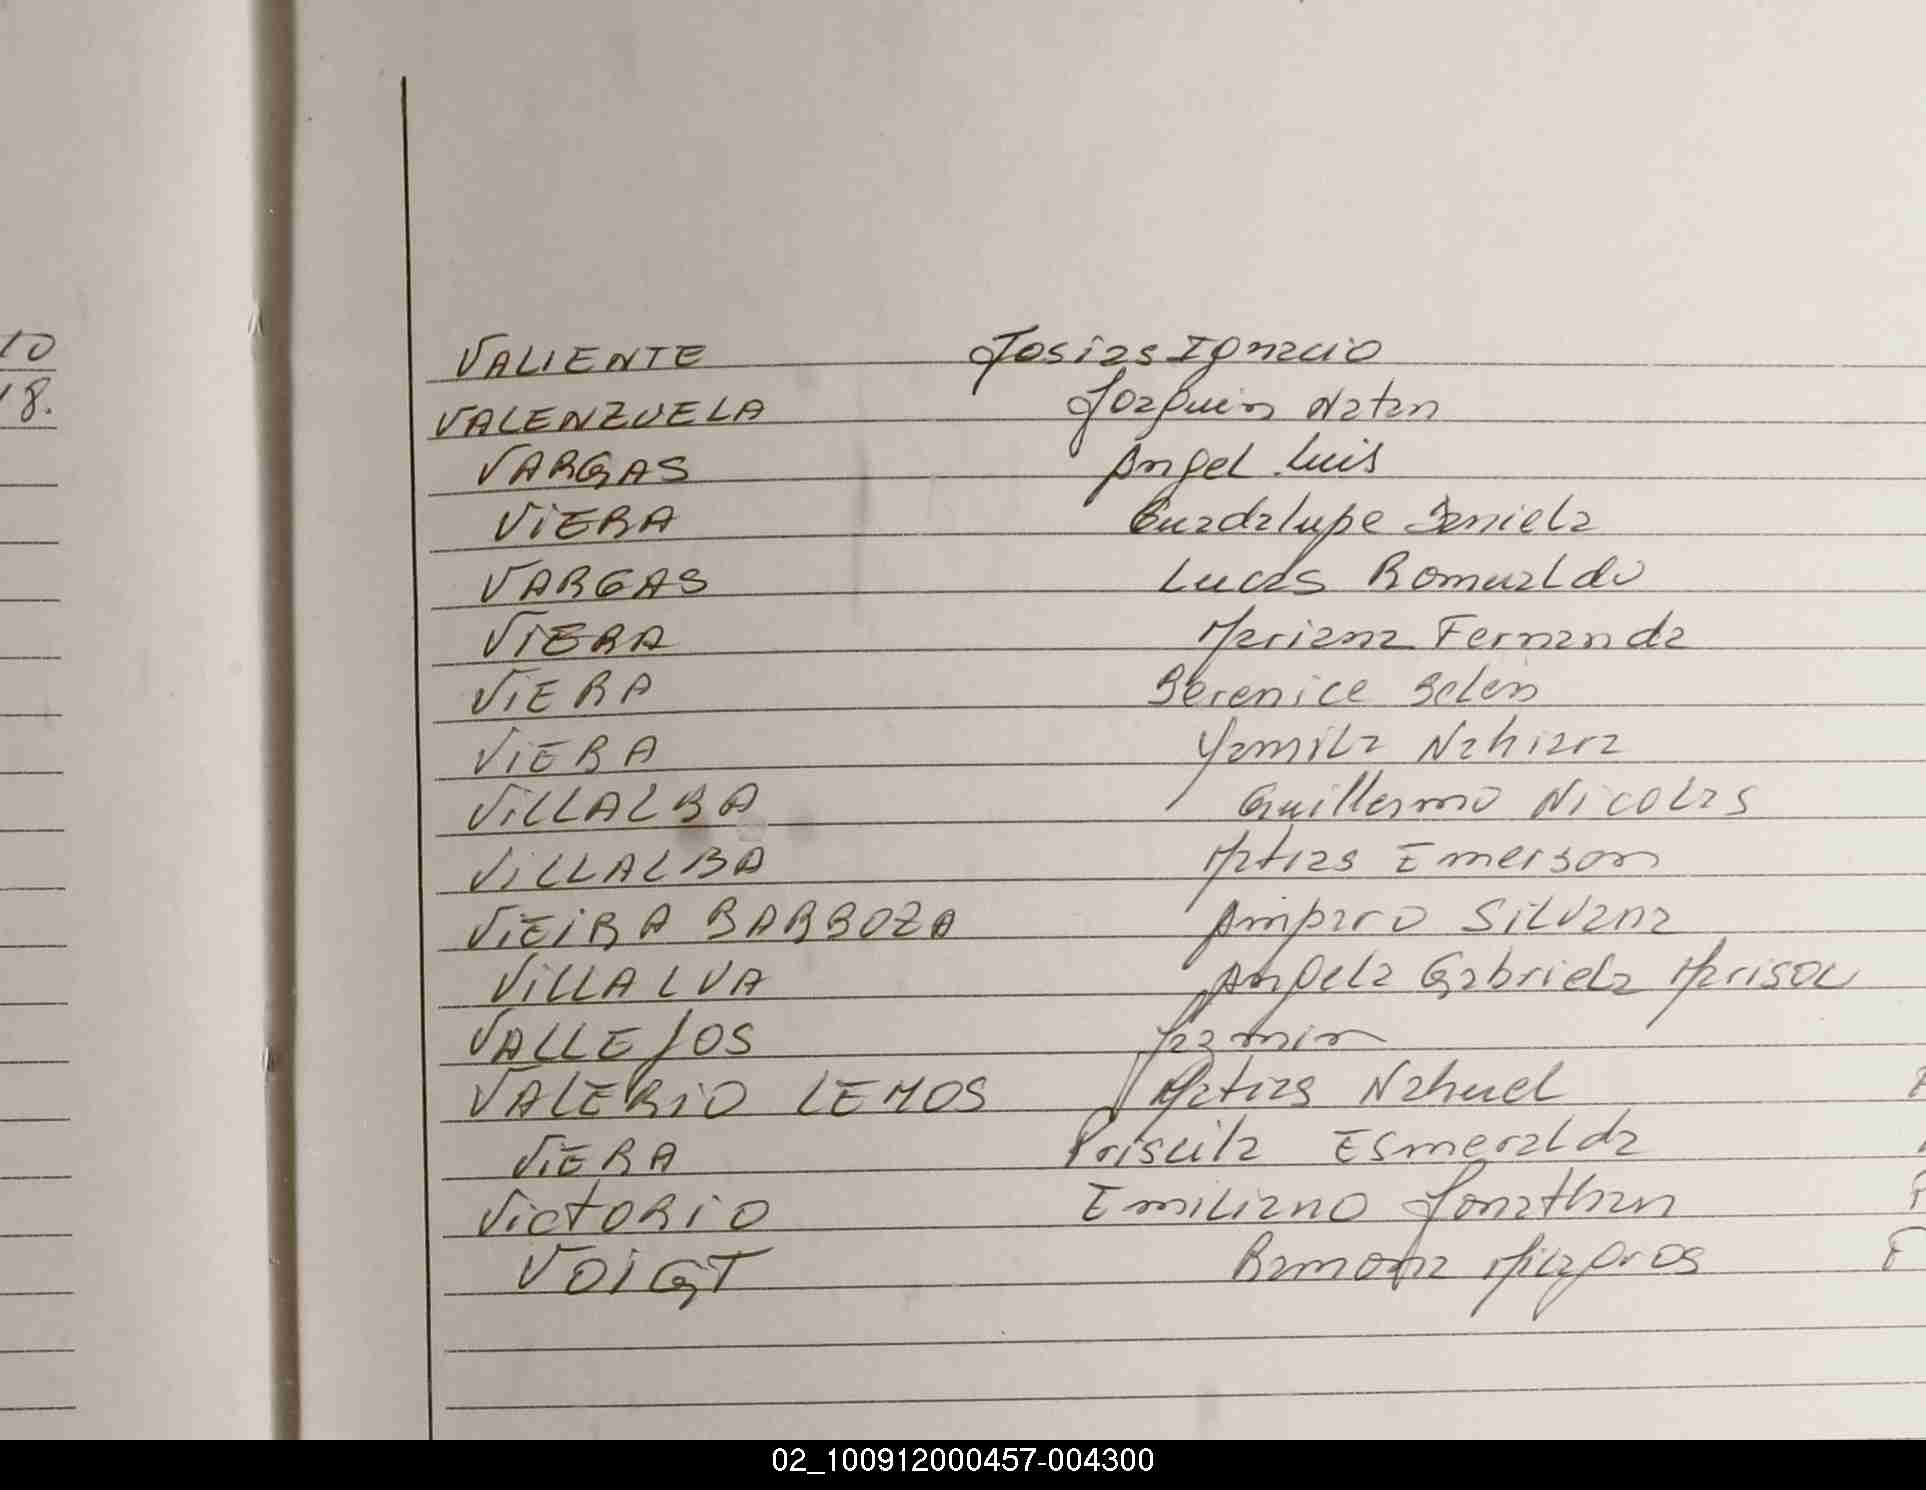 10
18.
VALIENTE Josias Ignacio
VALENZUELA Joaquin Natan
VARGAS Angel Luis
ViERA Guadalupe Daniela
VARGAS Lucas Romualdo
ViERA Mariana Fernanda
ViERA Berenice Belen
ViERA Yamila Nahiara
ViLLALBA Guillermo Nicolas
ViLLALBA Matias Emerson
ViEiRA BARBOZA Amparo Silvana
ViLLALVA Angela Gabriela Marisol
VALLEJOS Jazmin
VALERiO LEMOS Matias Nahuel
ViERA Priscila Esmeralda
VictORiO Emiliano Jonathan
VOiGT Ramona Milagros
02_100912000457-004300